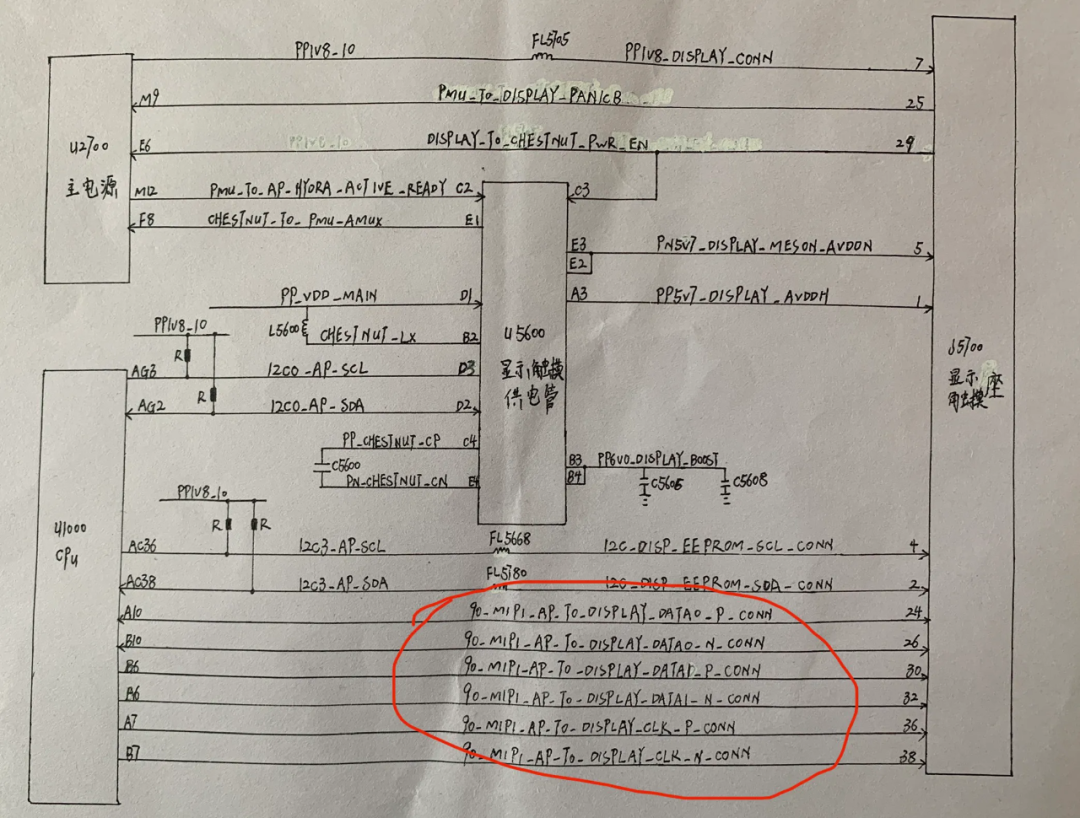 PP1V8_10 FL5705 PP1V8_DISPLAY_CONN 7
M9 PMU_TO_DISPLAY_PANICB 25
E6 DISPLAY_TO_CHESTNUT_PWR_EN 29
U2700
主电源
M12 PMU_TO_AP_HYDRA_ACTIVE_READY C2
C3
F8 CHESTNUT_TO_PMU_AMUX E1
E3 PN5V7_DISPLAY_MESON_AVDDN 5
E2
PP_VDD_MAIN D1
A3 PP5V7_DISPLAY_AVDDH 1
PP1V8_10
L5600 CHESTNUT_LX B2
U5600
显示,触摸
供电管
J5700
显示
触摸座
R
AG3 I2C0_AP_SCL D3
R
AG2 I2C0_AP_SDA D2
PP_CHESTNUT_CP C4
C5600
PN_CHESTNUT_CN E4
B3 PP6V0_DISPLAY_BOOST
B4
C5605 C5608
PP1V8_10
R R
U1000
CPU
AC36 I2C3_AP_SCL FL5668 I2C_DISP_EEPROM_SCL_CONN 4
AC38 I2C3_AP_SDA FL5780 I2C_DISP_EEPROM_SDA_CONN 2
A10 90_MIPI_AP_TO_DISPLAY_DATA0_P_CONN 24
B10 90_MIPI_AP_TO_DISPLAY_DATA0_N_CONN 26
B6 90_MIPI_AP_TO_DISPLAY_DATA1_P_CONN 30
A6 90_MIPI_AP_TO_DISPLAY_DATA1_N_CONN 32
A7 90_MIPI_AP_TO_DISPLAY_CLK_P_CONN 36
B7 90_MIPI_AP_TO_DISPLAY_CLK_N_CONN 38